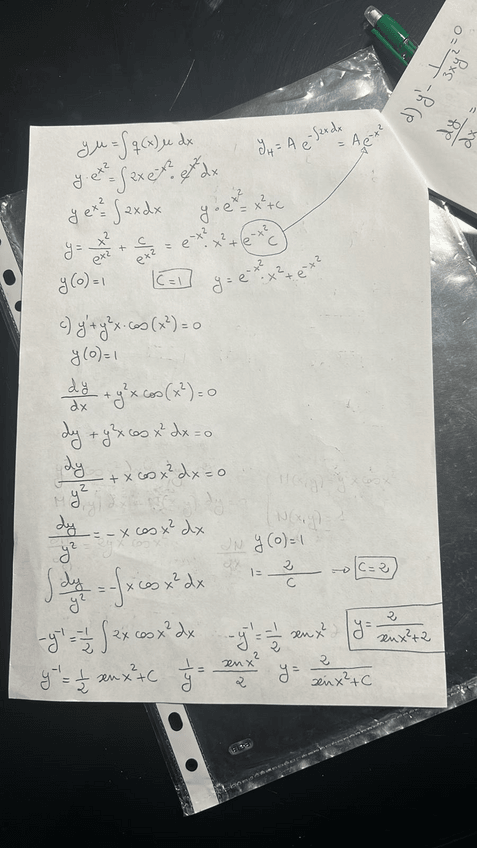 yμ = ∫q(x)μ dx    y_H = A e^{-∫2xdx} = A e^{-x²}
y·e^{x²} = ∫2x e^{-x²}·e^{x²} dx
y e^{x²} = ∫2x dx    y·e^{x²} = x² + C
y = x²/e^{x²} + C/e^{x²} = e^{-x²}·x² + e^{-x²}C
y(0)=1    C=1    y = e^{-x²}·x² + e^{-x²}
c) y' + y²x·cos(x²) = 0
y(0)=1
dy/dx + y²x cos(x²) = 0
dy + y²x cos x² dx = 0
dy/y² + x cos x² dx = 0
dy/y² = -x cos x² dx
y(0)=1
∫dy/y² = -∫x cos x² dx    1 = 2/C → C=2
-y⁻¹ = -1/2 ∫2x cos x² dx    -y⁻¹ = -1/2 sen x²    y = 2/(sen x²+2)
y⁻¹ = 1/2 sen x² + C    1/y = sen x²/2    y = 2/(sen x²+C)
d) y' - 1/3xy² = 0
dy/dx =